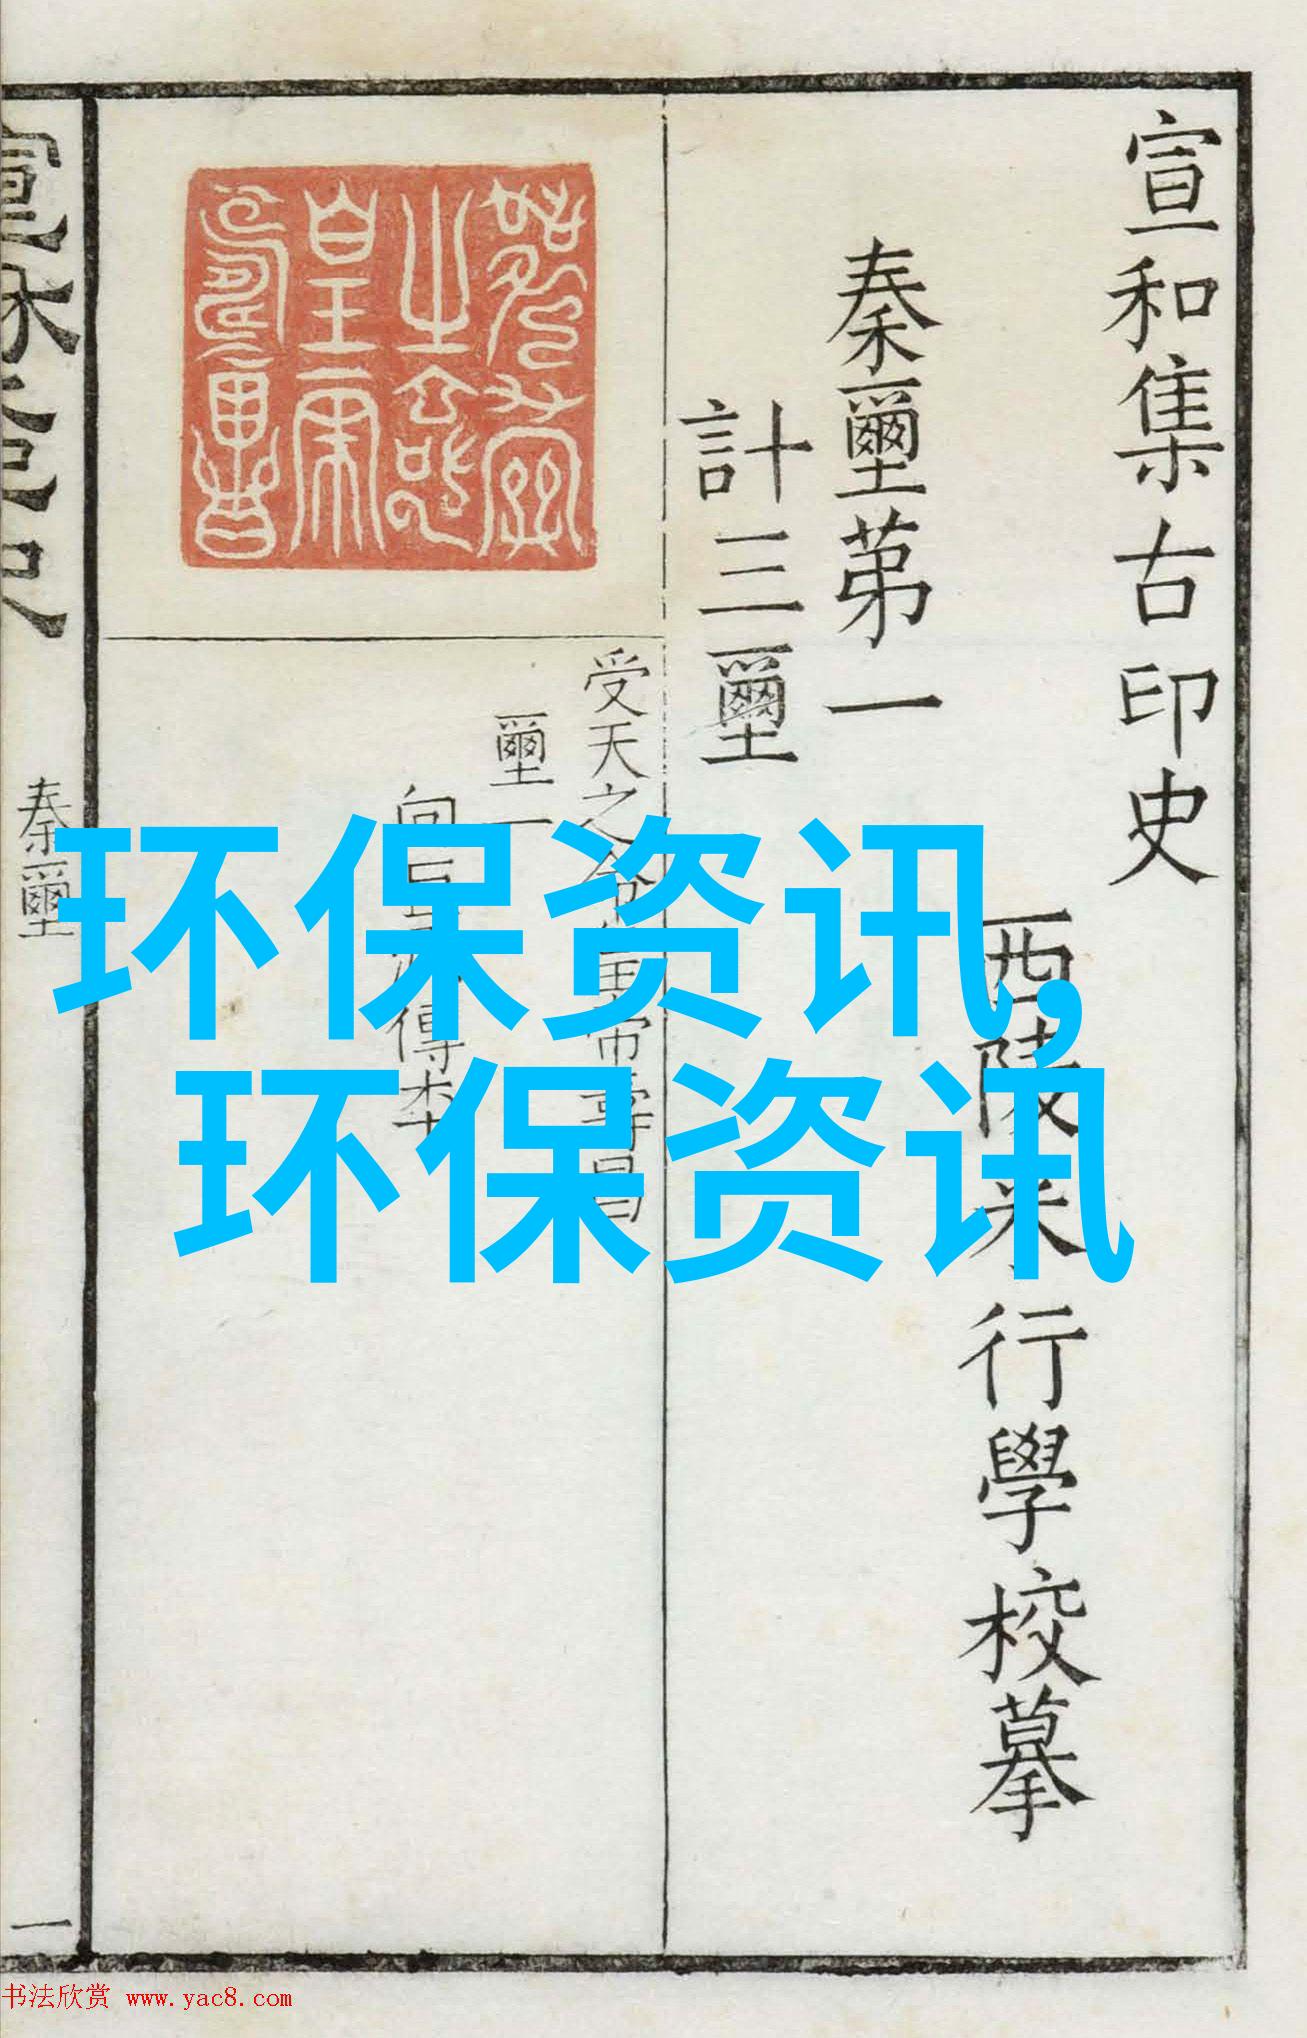 宣和集古印史
西陵來行學校摹
秦璽第一
計三璽
受天之命皇帝壽昌
璽一
向巨源傳本
秦璽
一
环保资讯,
环保资讯
书法欣赏 www.yac8.com